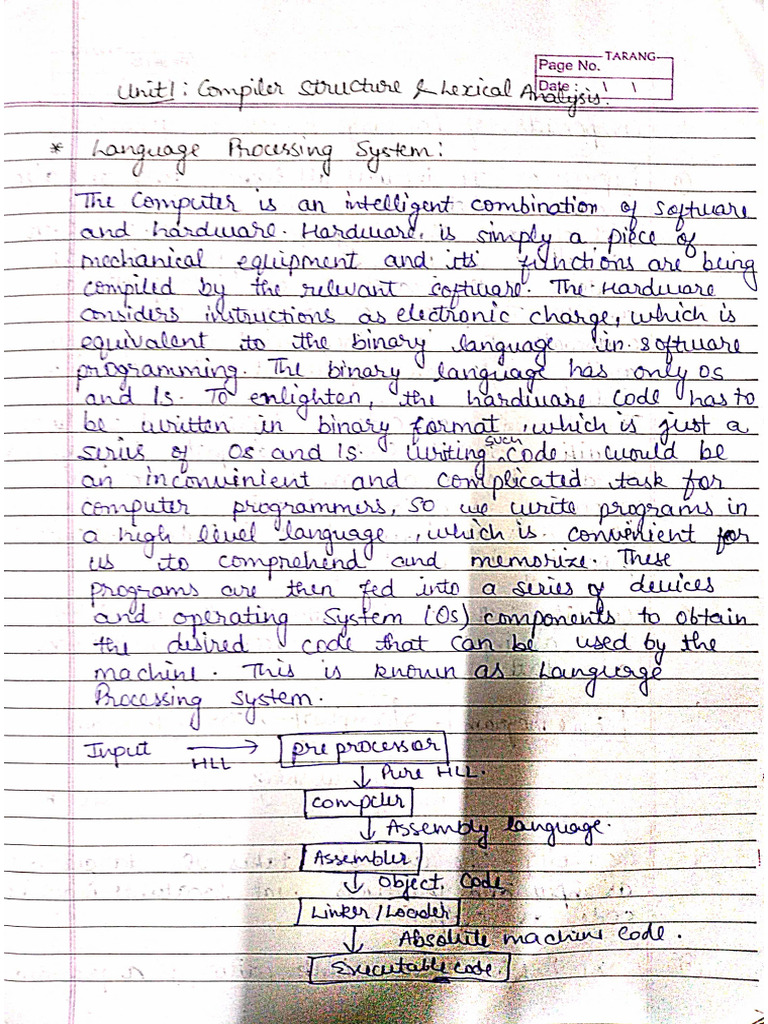 TARANG
Page No.
Date : \ \
Unit1: Compiler Structure & Lexical Analysis.
* Language Processing System:
The Computer is an intelligent combination of software
and hardware. Hardware, is simply a piece of
mechanical equipment and its functions are being
compiled by the relevant software. The Hardware
considers instructions as electronic charge, which is
equivalent to the binary language in software
programming. The binary language has only 0s
and 1s. To enlighten, the hardware code has to
be written in binary format, which is just a
series of 0s and 1s. Writing such code would be
an inconvenient and complicated task for
computer programmers, so we write programs in
a high level language, which is convenient for
us to comprehend and memorize. These
programs are then fed into a series of devices
and operating System (Os) components to obtain
the desired code that can be used by the
machine. This is known as Language
Processing System.
Input HLL → preprocessor
↓ Pure HLL.
compiler
↓ Assembly language.
Assembler
↓ Object Code
Linker/Loader
↓ Absolute machine code.
Executable code.